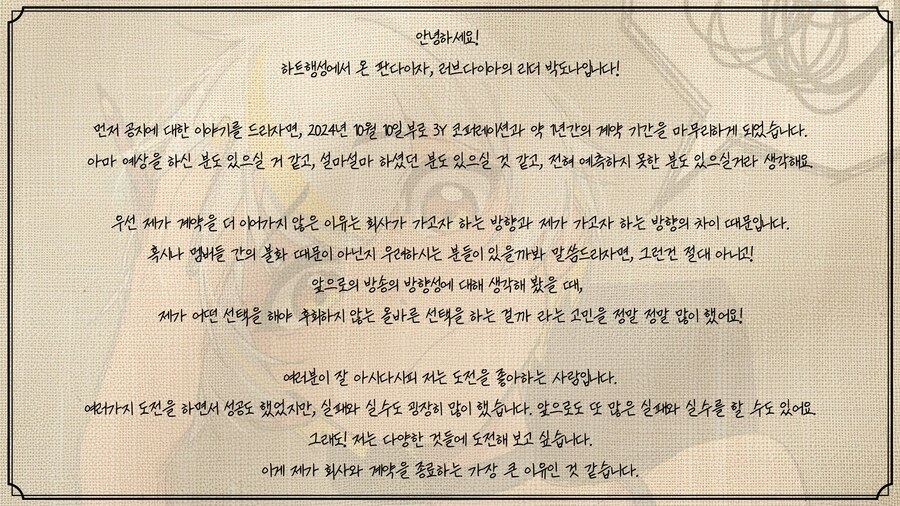 안녕하세요!
하트행성에서 온 판다이자, 러브다이아의 리더 박도나입니다!
먼저 공지에 대한 이야기를 드리자면, 2024년 10월 10일부로 3Y 코퍼레이션과 약 1년간의 계약 기간을 마무리하게 되었습니다.
아마 예상을 하신 분도 있으실 거 같고, 설마설마 하셨던 분도 있으실 것 같고, 전혀 예측하지 못한 분도 있으실거라 생각해요.
우선 제가 계약을 더 이어가지 않은 이유는 회사가 가고자 하는 방향과 제가 가고자 하는 방향의 차이 때문입니다.
혹시나 멤버들 간의 불화 때문이 아닌지 우려하시는 분들이 있을까봐 말씀드리자면, 그런건 절대 아니고!
앞으로의 방송의 방향성에 대해 생각해 봤을 때,
제가 어떤 선택을 해야 후회하지 않는 올바른 선택을 하는 걸까 라는 고민을 정말 정말 많이 했어요!
여러분이 잘 아시다시피 저는 도전을 좋아하는 사람입니다.
여러가지 도전을 하면서 성공도 했었지만, 실패와 실수도 굉장히 많이 했습니다. 앞으로도 또 많은 실패와 실수를 할 수도 있어요.
그래도! 저는 다양한 것들에 도전해 보고 싶습니다.
이게 제가 회사와 계약을 종료하는 가장 큰 이유인 것 같습니다.